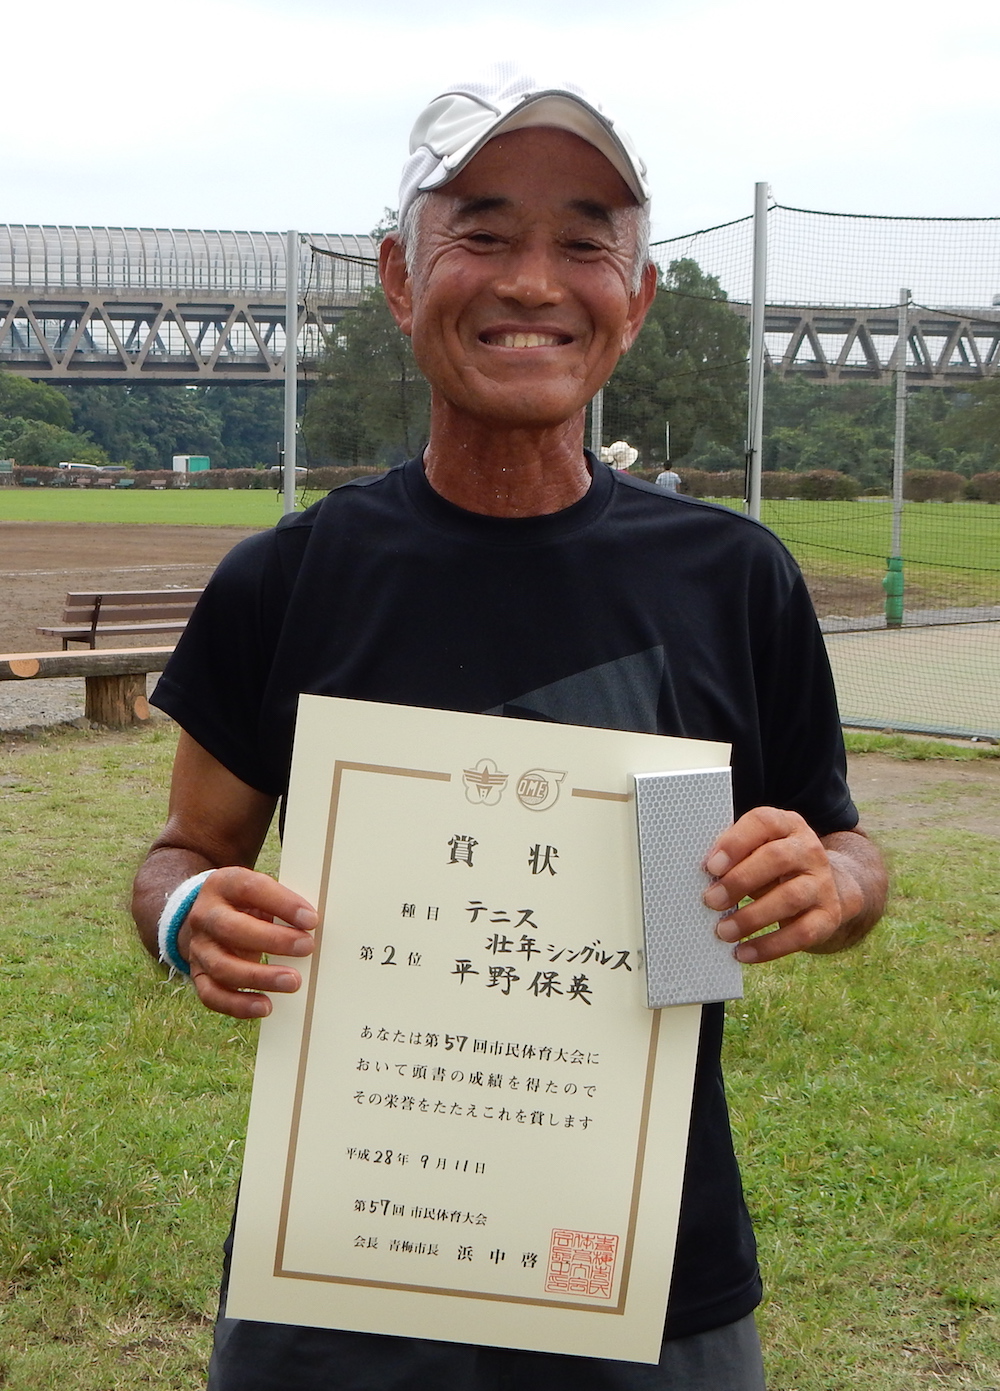 青 OME
賞 状
種目 テニス
壮年シングルス
第2位 平野保英
あなたは第57回市民体育大会に
おいて頭書の成績を得たので
その栄誉をたたえこれを賞します
平成28年9月11日
第57回 市民体育大会
会長 青梅市長 浜中啓